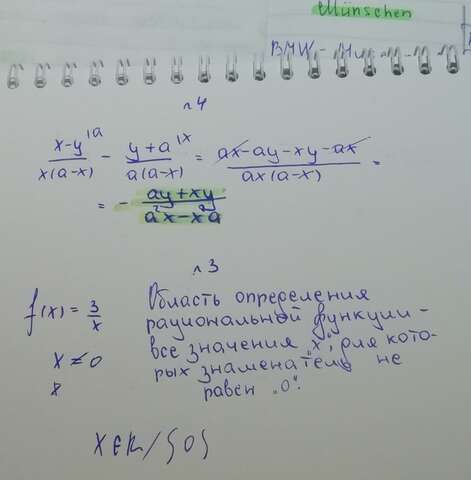 Münschen
BMW -
№4
x-y |a / x(a-x) - y+a |x / a(a-x) = ax-ay-xy-ax / ax(a-x) =
= - ay+xy / a²x-x²a
№3
f(x) = 3/x
Область определения
рациональной функции -
все значения "x", для кото-
x ≠ 0
рых знаменатель не
равен "0".
x∈R/{0}